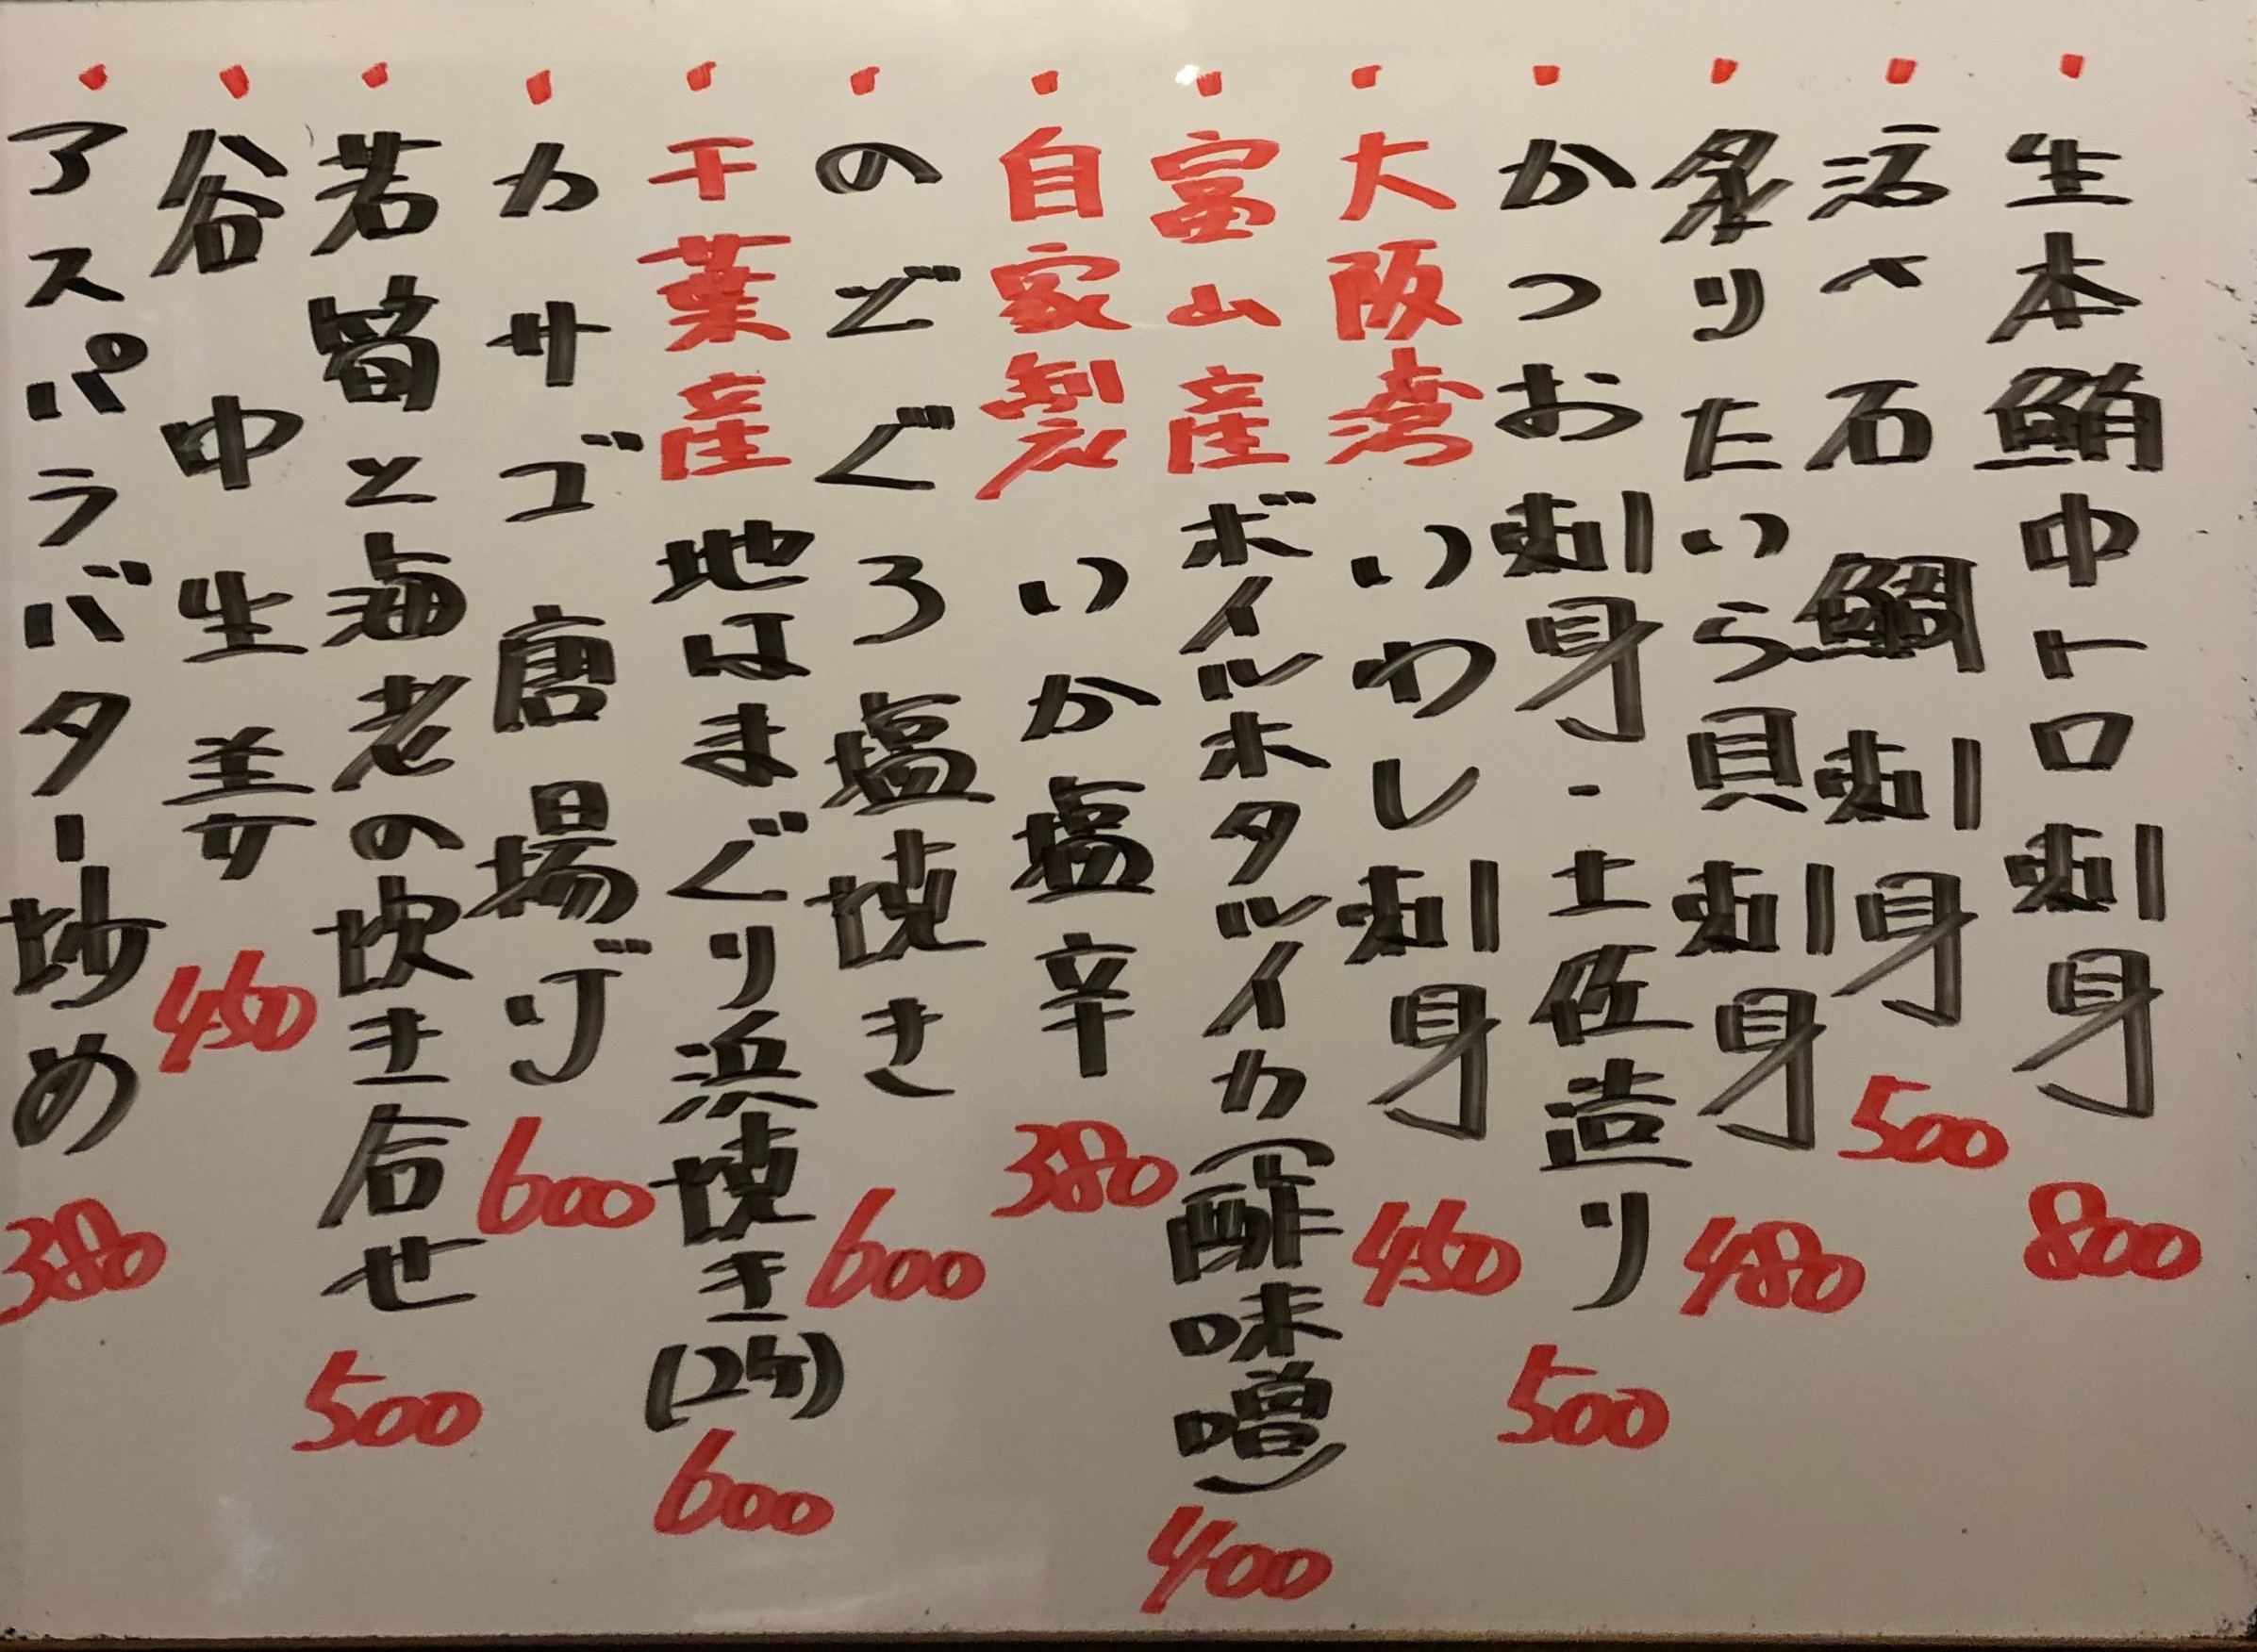 ・生本鮪中トロ刺身 800
・活〆石鯛刺身 500
・炙りたいら貝刺身 480
・かつお刺身・土佐造り 500
・大阪湾 いわし刺身 450
・富山産 ボイルホタルイカ(酢味噌) 400
・自家製 いか塩辛 380
・のどぐろ塩焼き 600
・千葉産 地はまぐり浜焼き(2ケ) 600
・カサゴ唐揚げ 600
・若筍と海老の炊き合せ 500
・谷中生姜 450
・アスパラバター炒め 380